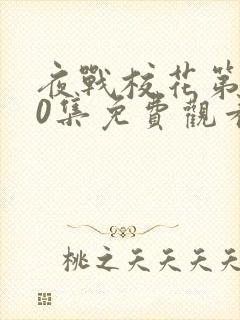 夜戰校花第
0集免費觀看
桃之夭夭夭夭